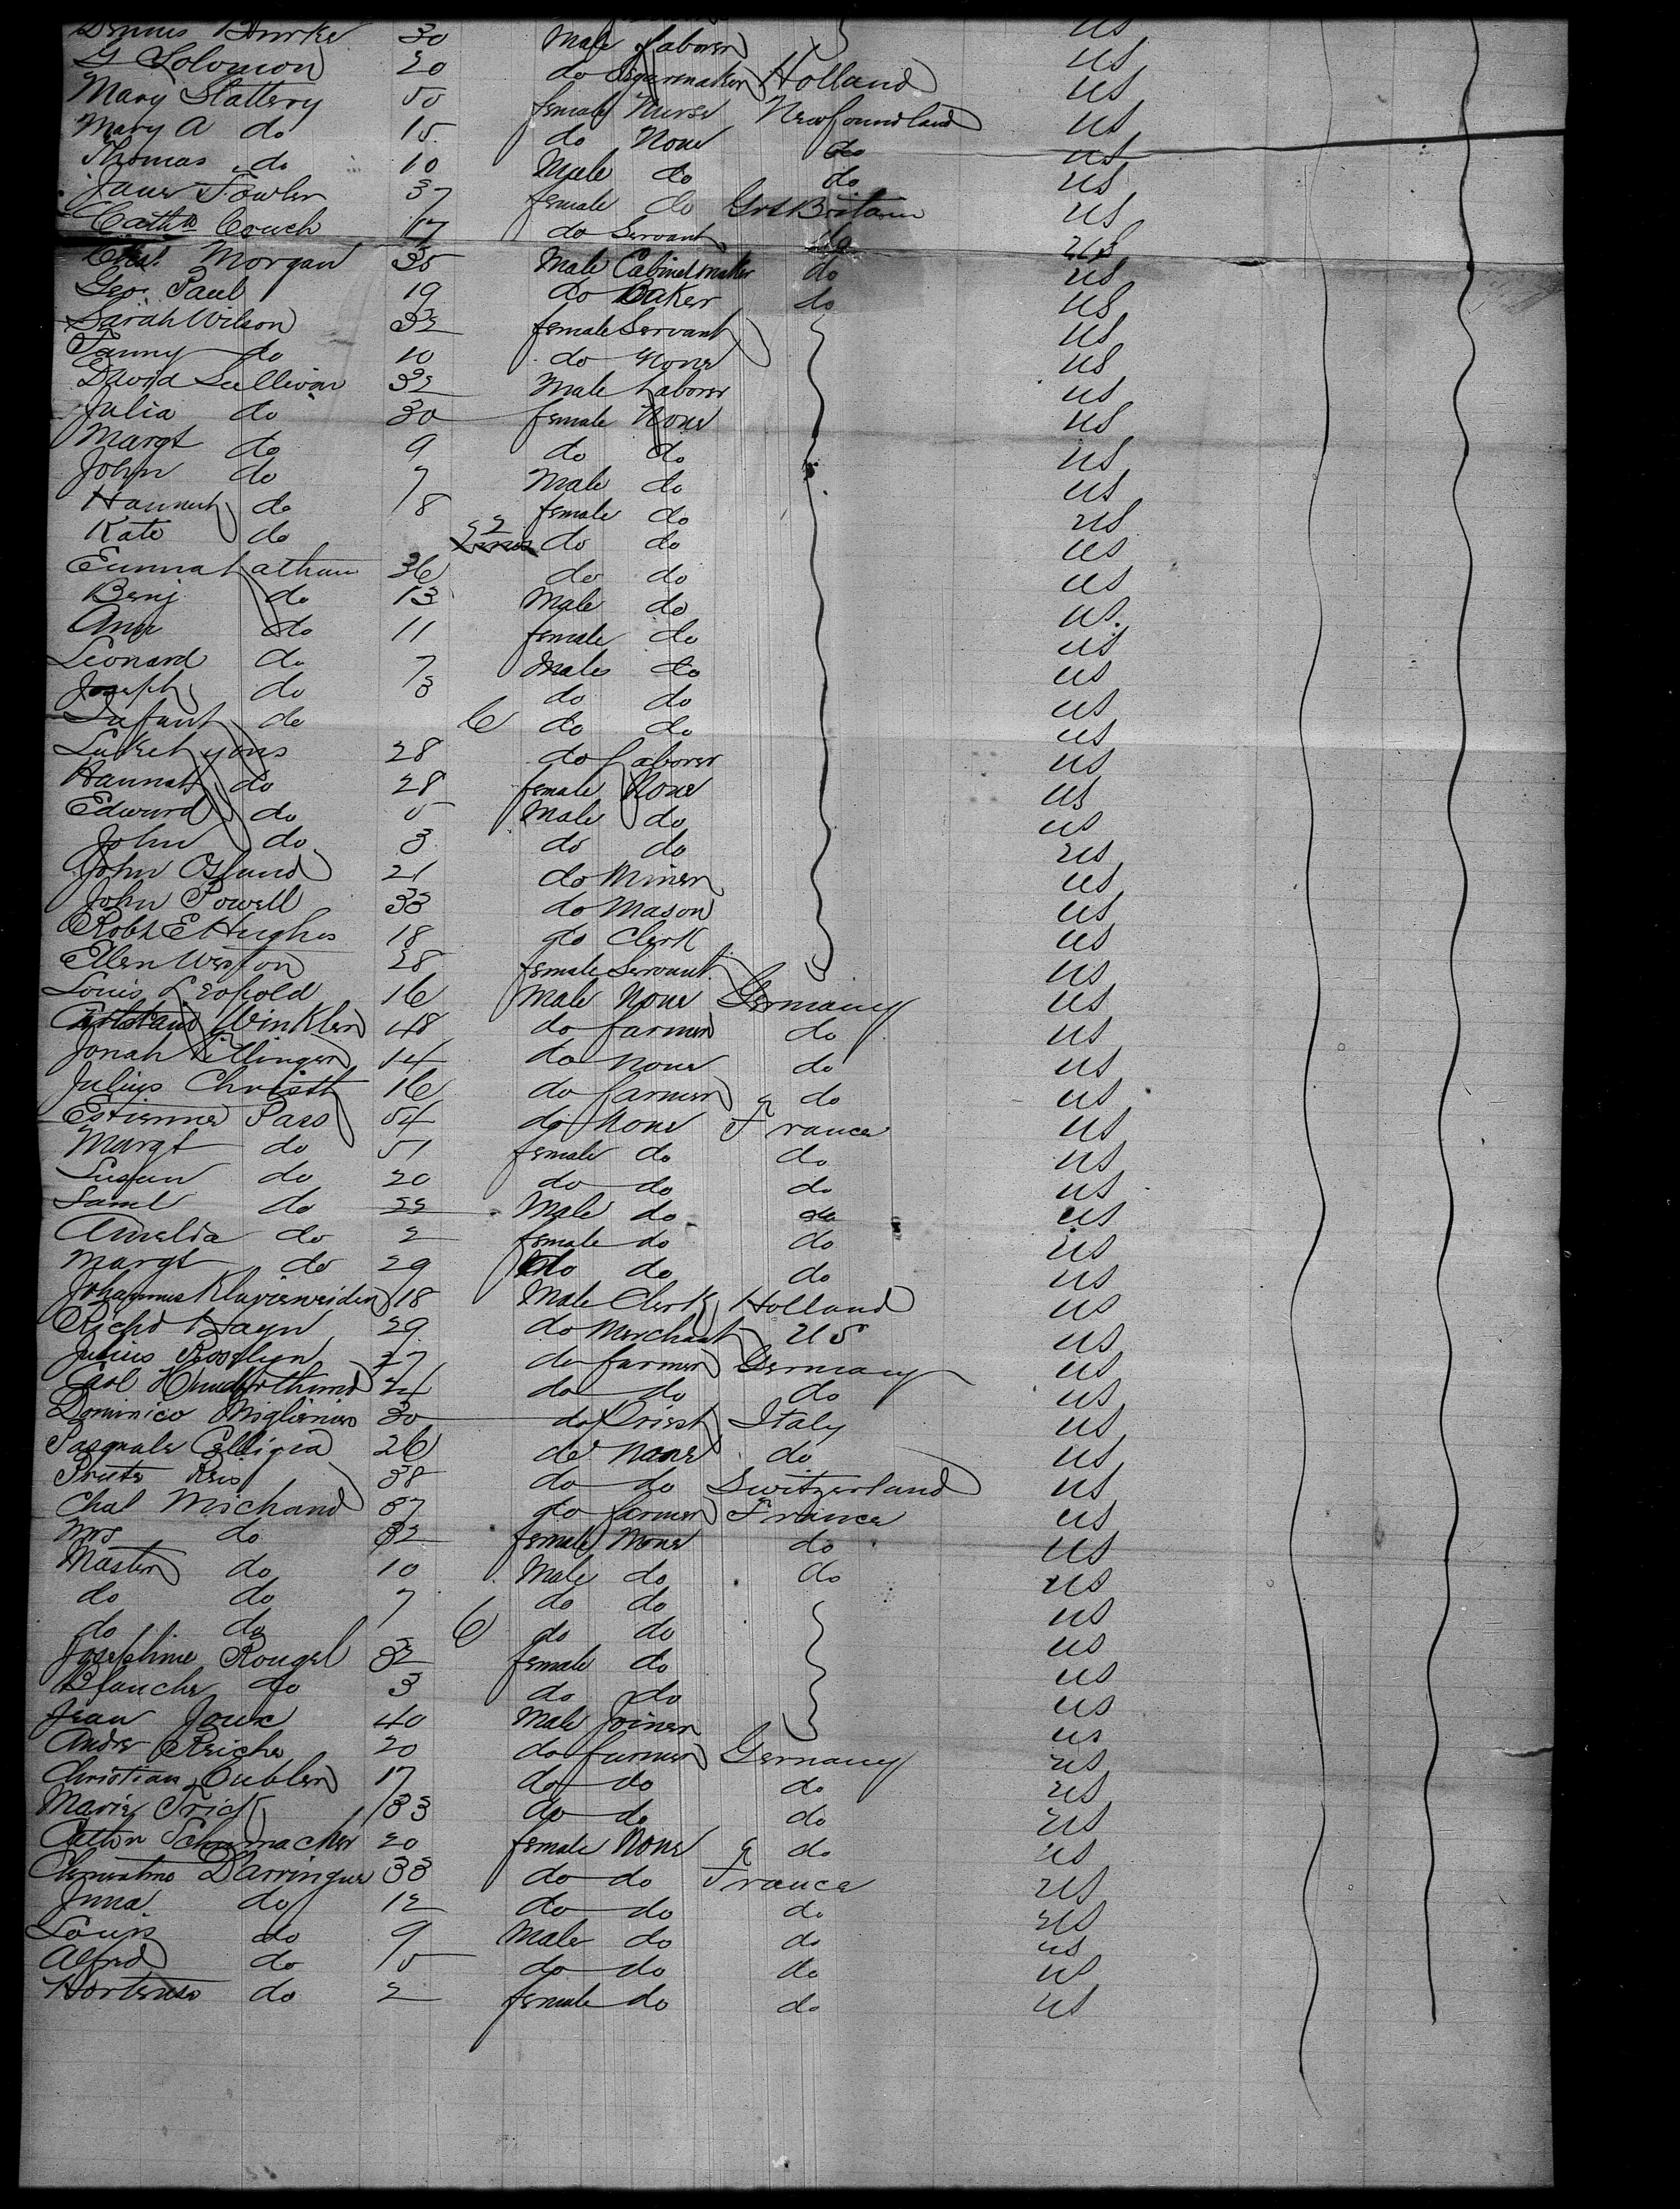 Dennis Burke 30 Male Laborer US
G Solomon 20 do Segarmaker Holland US
Mary Slattery 50 female Nurse Newfoundland US
Mary A do 15 do None do US
Thomas do 10 Male do do US
Jane Fowler 37 female do Grt Britain US
Cath Couch 17 do Servant do US
Chas. Morgan 35 Male Cabinetmaker do US
Geo. Paul 19 do Baker do US
Sarah Wilson 32 female Servant US
Fanny do 10 do None US
David Sullivan 32 Male Laborer US
Julia do 30 female None US
Margt do 9 do do US
John do 7 Male do US
Hannah do 8 female do US
Kate do do do US
Emma Lathan 36 do do US
Benj do 13 Male do US
Ann do 11 female do US
Leonard do 7 Male do US
Joseph do 3 do do US
Infant do 6 do do US
Luke Lyons 28 do Laborer US
Hannah do 28 female None US
Edward do 5 Male do US
John do 3 do do US
John Oslund 21 do Miner US
John Powell 33 do Mason US
Robt E Hughes 18 do Clerk US
Ellen Weston 28 female Servant US
Louis Leopold 16 Male None Germany US
Winkler 48 do farmer do US
Jonah 14 do None do US
Julius Christh 16 do farmer do US
Estienne Pass 54 do None France US
Margt do 51 female do do US
Susan do 20 do do do US
Saml do 22 Male do do US
Amelia do 2 female do do US
Margt do 29 do do do US
Johannes 18 Male Clerk Holland US
Richd Hayn 29 do Merchant US US
Julius Rosslyn 27 do farmer Germany US
Carl 24 do do do US
Dominico 30 do Priest Italy US
Pasquale 26 do None do US
38 do do Switzerland US
Chas Michand 37 do farmer France US
Mrs do 32 female None do US
Master do 10 Male do do US
do do 7 do do US
do do 6 do do US
Josephine Rougel 32 female do US
Blanche do 3 do do US
Jean Joux 40 Male Joiner US
Andre Reiche 20 do farmer Germany US
Christian Oubler 17 do do do US
Marie Frick 33 do do do US
Schumacher 20 female None do US
Darringue 33 do do France US
Jnna do 12 do do do US
Louis do 9 Male do do US
Alfred do 5 do do do US
Hortense do 2 female do do US